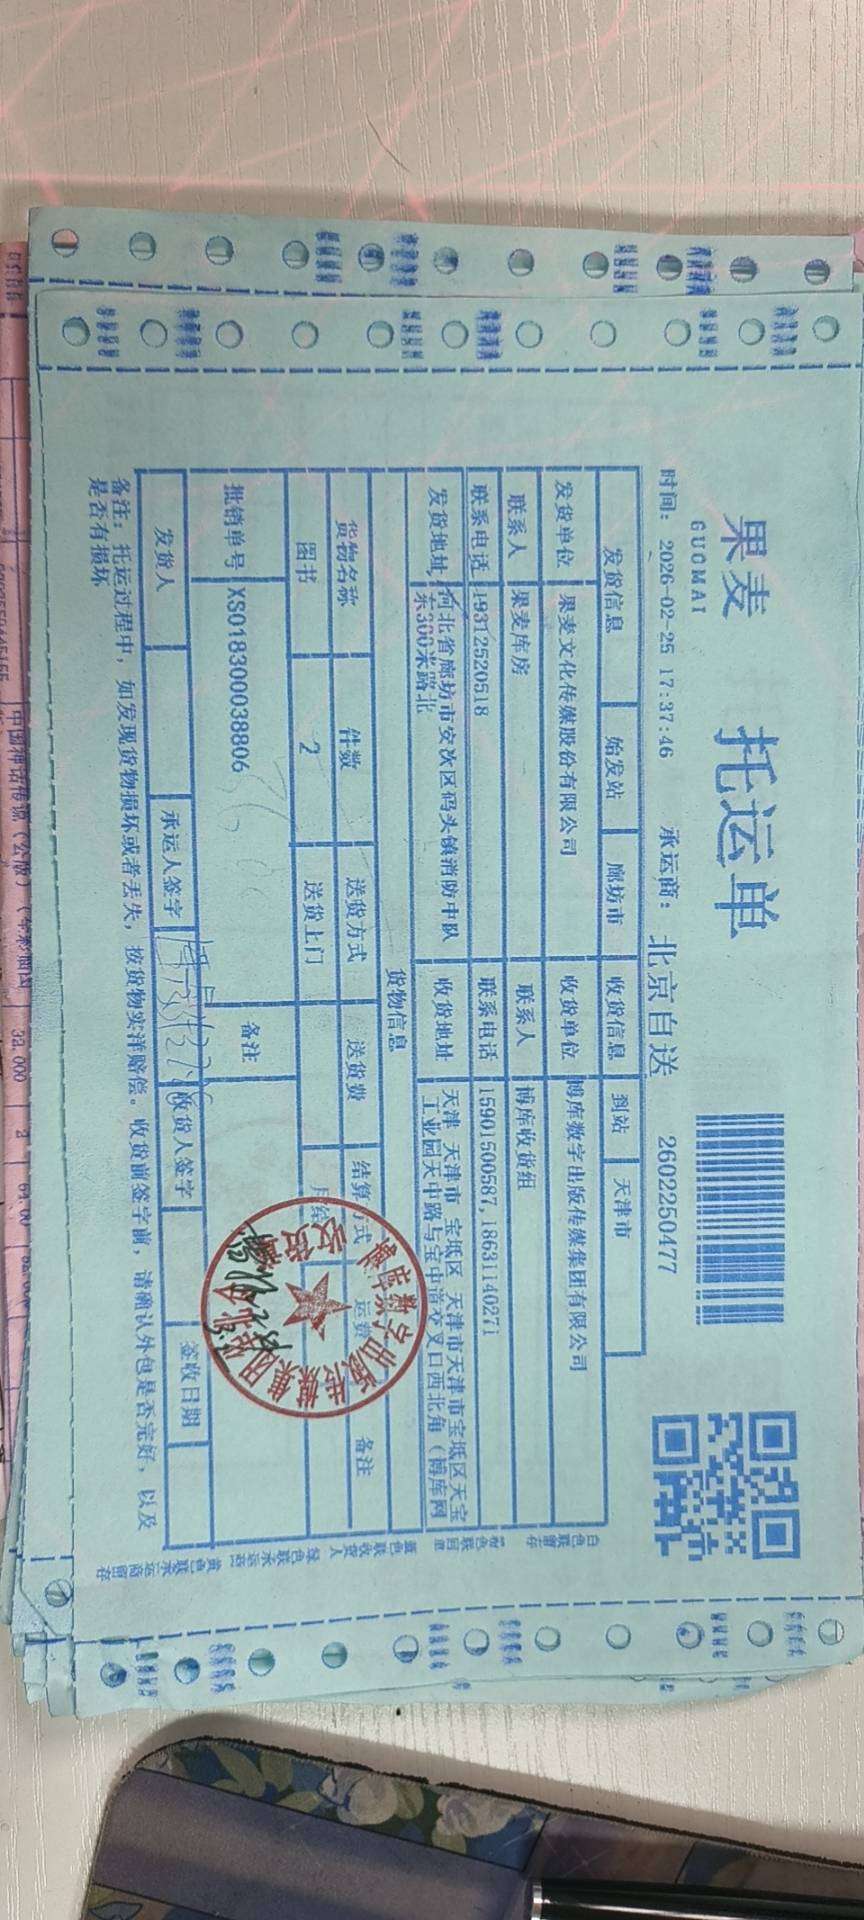 果麦 托运单
GUOMAI
时间: 2026-02-25 17:37:46 承运商: 北京自送 2602250477
发货信息 始发站 廊坊市 收货信息 到站 天津市
发货单位 果麦文化传媒股份有限公司 收货单位 博库数字出版传媒集团有限公司
联系人 果麦库房 联系人 博库收货组
联系电话 19312520518 联系电话 15901500587,18631140271
发货地址 河北省廊坊市安次区码头镇消防中队 收货地址 天津 天津市 宝坻区 天津市天津市宝坻区天宝
东300米路北 工业园天中路与宝中道交叉口西北角(博库网
货物信息
货物名称 件数 送货方式 送货费 结算方式 运费 备注
图书 2 送货上门 月结
批销单号 XS018300038806 备注
发货人 承运人签字 收货人签字 签收日期
备注: 托运过程中, 如发现货物损坏或者丢失, 按货物实洋赔偿。收货前签字前, 请确认外包是否完好, 以及
是否有损坏
白色联留存 粉色联回单 蓝色联收货人 绿色联承运商 黄色联承运商留存
收货
中国神话传说(公版)
32.000 2 64.00